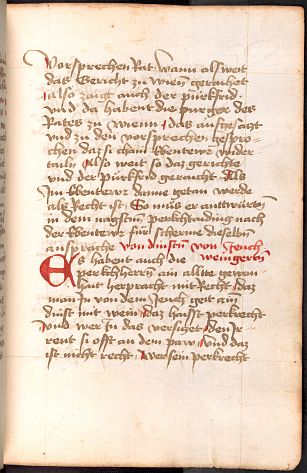 vorsprechen Rat wann als weit
das Gericht zu wienn geraichet
also raicht auch der purkfrid
und da habent die purger des
Rates zu wienn das aufgesatzt
und zu den vorsprechen gespro-
chen daz si chain wider
taill Also weit so daz gerichte
und der purkfrid geraicht Als
im danne getan werde
als Recht ist So mus er antwurttn
in dem nagstn perkhtaiding nach
der fur dieselbn
ansprache von dinstn von Jeuch
weingertn
Es habent auch die
perkhherrn ain alltte gewon-
hait herpracht mit Recht daz
man In von dem Jeuch geit ain
dinst mit wein daz haisst perkrecht
und wer In das versitzet den Ir-
rent si offt an dem paw und daz
ist nicht recht wer sein perkrecht